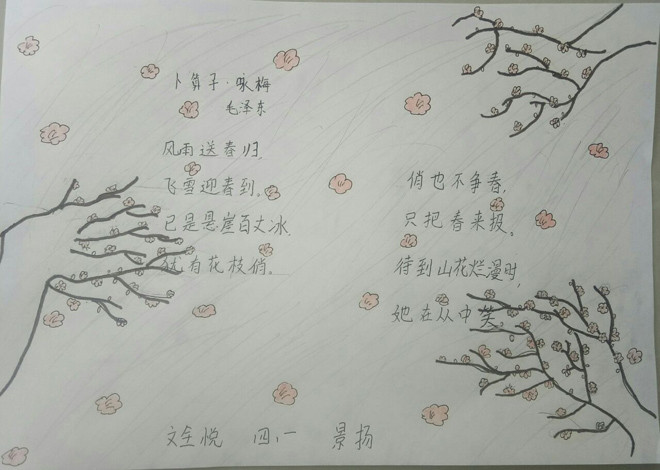 卜算子·咏梅
毛泽东
风雨送春归,
飞雪迎春到。
已是悬崖百丈冰
犹有花枝俏。
俏也不争春,
只把春来报。
待到山花烂漫时,
她在丛中笑。
悦 四、一 景扬